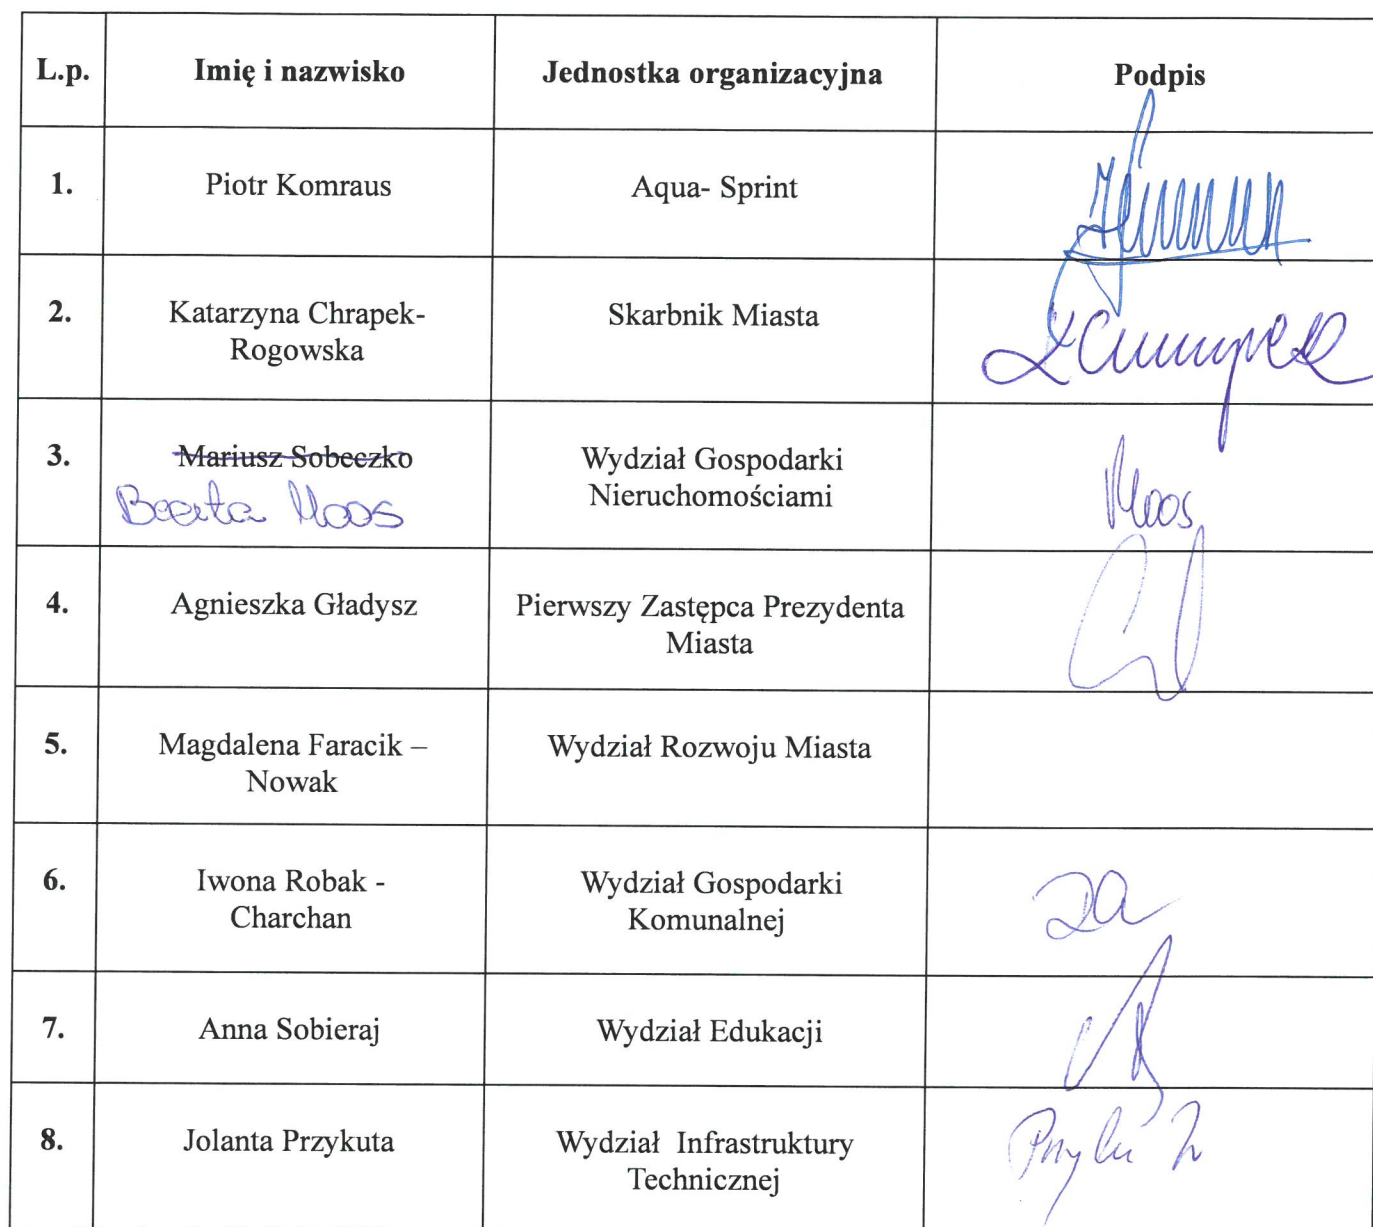 L.p. Imię i nazwisko Jednostka organizacyjna Podpis
1. Piotr Komraus Aqua- Sprint
2. Katarzyna Chrapek- Skarbnik Miasta
Rogowska
3. Mariusz Sobeczko Wydział Gospodarki
Beata Moos Nieruchomościami Moos
4. Agnieszka Gładysz Pierwszy Zastępca Prezydenta
Miasta
5. Magdalena Faracik – Wydział Rozwoju Miasta
Nowak
6. Iwona Robak - Wydział Gospodarki
Charchan Komunalnej
7. Anna Sobieraj Wydział Edukacji
8. Jolanta Przykuta Wydział Infrastruktury
Technicznej